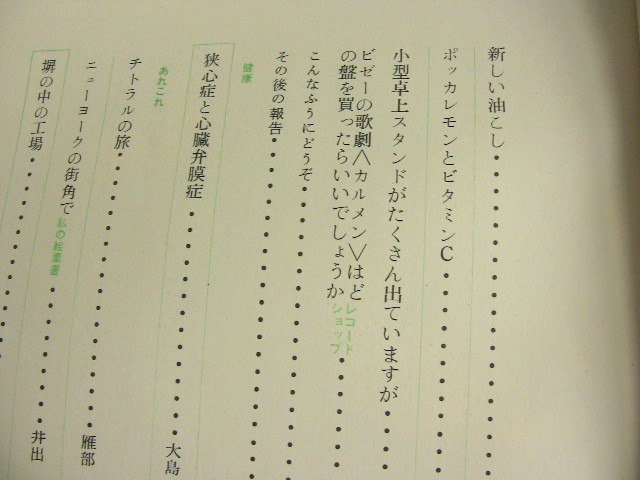 新しい油こし
ポッカレモンとビタミンC
小型卓上スタンドがたくさん出ていますが
ビゼーの歌劇〈カルメン〉はど
の盤を買ったらいいでしょうか
レコード
ショップ
こんなふうにどうぞ
その後の報告
健康
狭心症と心臓弁膜症
大島
あれこれ
チトラルの旅
雁部
ニューヨークの街角で
私の絵葉書
井出
塀の中の工場